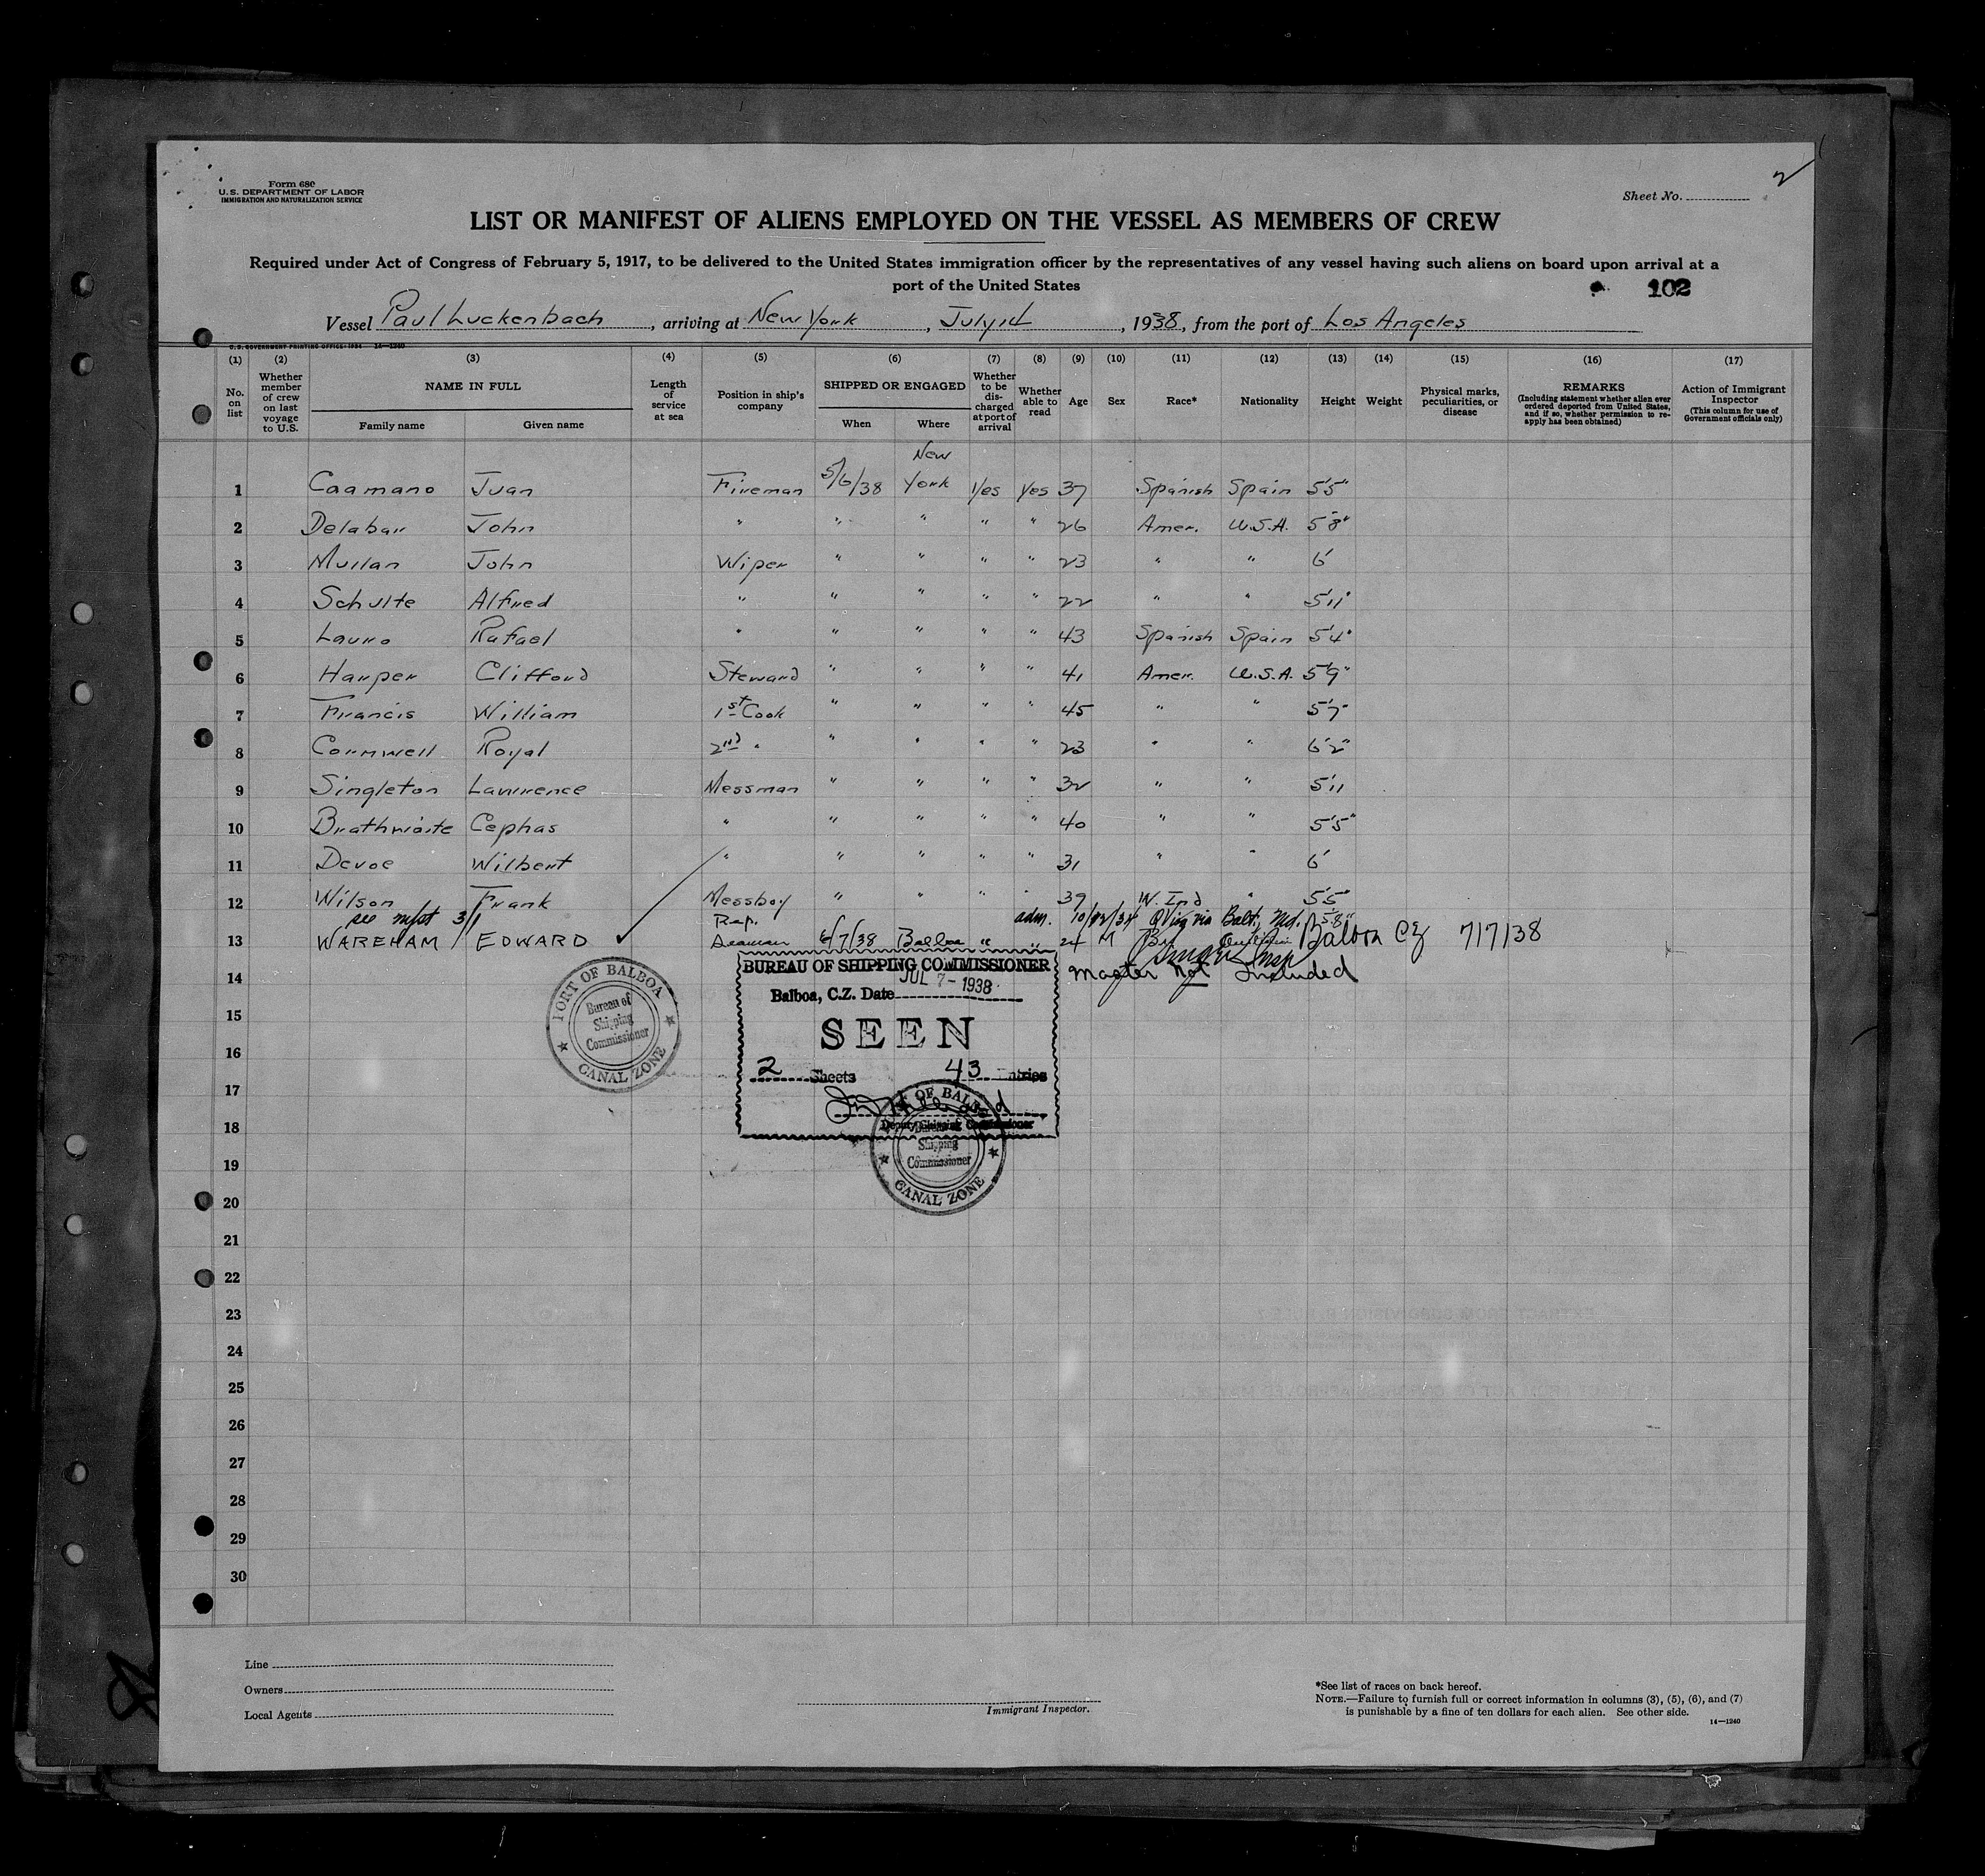 Form 680
U. S. DEPARTMENT OF LABOR
IMMIGRATION AND NATURALIZATION SERVICE
Sheet No. 2
LIST OR MANIFEST OF ALIENS EMPLOYED ON THE VESSEL AS MEMBERS OF CREW
Required under Act of Congress of February 5, 1917, to be delivered to the United States immigration officer by the representatives of any vessel having such aliens on board upon arrival at a
port of the United States
102
Vessel Paul Luckenbach, arriving at New York, July 14, 1938, from the port of Los Angeles
U. S. GOVERNMENT PRINTING OFFICE: 1934 14—1240
(1) (2) (3) (4) (5) (6) (7) (8) (9) (10) (11) (12) (13) (14) (15) (16) (17)
No. on list Whether member of crew on last voyage to U.S. NAME IN FULL Family name Given name Length of service at sea Position in ship's company SHIPPED OR ENGAGED When Where Whether to be discharged at port of arrival Whether able to read Age Sex Race* Nationality Height Weight Physical marks, peculiarities, or disease REMARKS (Including statement whether alien ever ordered deported from United States, and if so, whether permission to reapply has been obtained) Action of Immigrant Inspector (This column for use of Government officials only)
1 Caamano Juan Fireman 5/6/38 New York Yes Yes 37 Spanish Spain 5'5"
2 Delabar John " " " " " 26 Amer. U.S.A. 5'8"
3 Mullan John Wiper " " " " 23 " " 6'
4 Schulte Alfred " " " " " 22 " " 5'11"
5 Lauro Rafael " " " " " 43 Spanish Spain 5'4"
6 Harper Clifford Steward " " " " 41 Amer. U.S.A. 5'9"
7 Francis William 1st Cook " " " " 45 " " 5'7"
8 Cornwell Royal 2nd " " " " " 23 " " 6'2"
9 Singleton Lawrence Messman " " " " 32 " " 5'11
10 Brathwaite Cephas " " " " " 40 " " 5'5"
11 Devoe Wilbert " " " " " 31 " " 6'
12 Wilson Frank Messboy " " " " 39 W. Ind " 5'5"
see mfst 3/1 Rep. adm. via Balti, Md. 5'8"
13 WAREHAM EDWARD Seaman 6/7/38 Balboa " " 24 M Br Balboa CZ 7/7/38
Insp
14 Master Not Included
15
16
17
18
19
20
21
22
23
24
25
26
27
28
29
30
PORT OF BALBOA
Bureau of
Shipping
Commissioner
CANAL ZONE
BUREAU OF SHIPPING COMMISSIONER
Balboa, C.Z. Date JUL 7 - 1938
SEEN
2 Sheets 43 Entries
Deputy Shipping Commissioner
PORT OF BALBOA
Bureau of
Shipping
Commissioner
CANAL ZONE
Line
Owners
Local Agents
Immigrant Inspector.
*See list of races on back hereof.
NOTE.—Failure to furnish full or correct information in columns (3), (5), (6), and (7)
is punishable by a fine of ten dollars for each alien. See other side.
14—1240